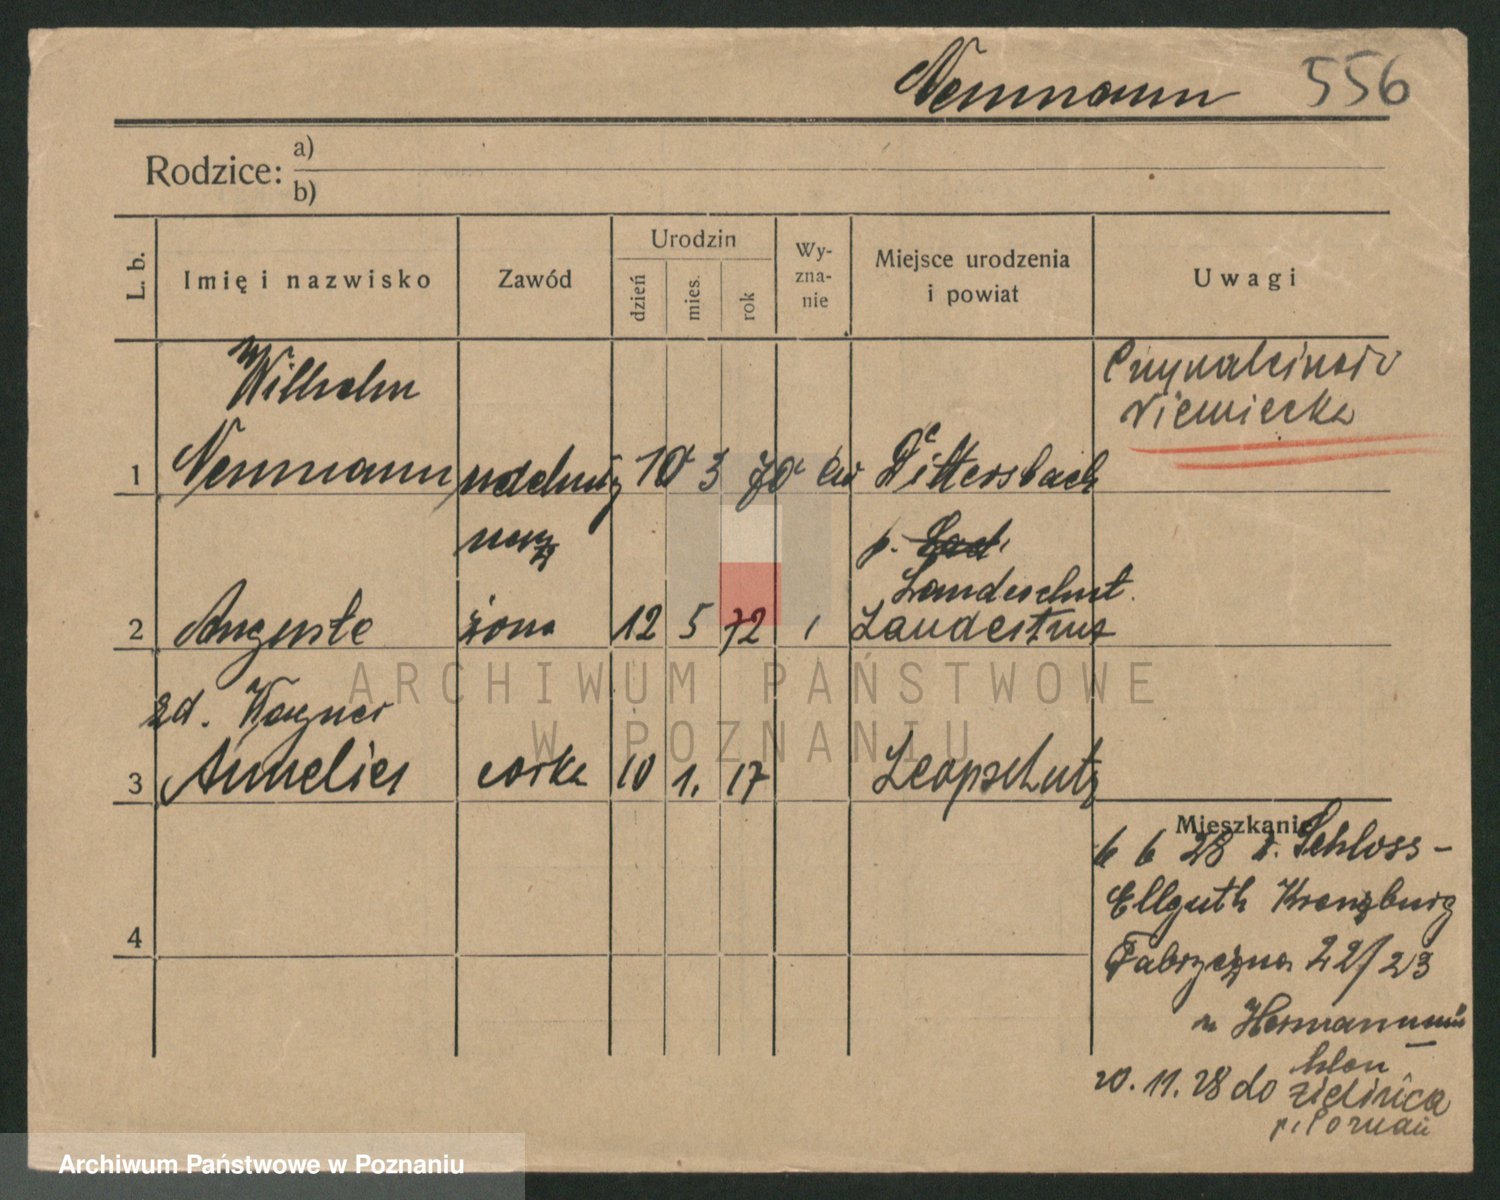 Neumann 556
Rodzice: a)
b)
L. b.
Imię i nazwisko
Zawód
Urodzin
dzień
mies.
rok
Wy-
zna-
nie
Miejsce urodzenia
i powiat
Uwagi
Wilhelm
Przynależność
Niemiecka
1 Neumann 10 3 70 ew Dittersbach
p.
Landeshut.
2 Auguste żona 12 5 72 Landeshut
zd. Wagner
3 Amelie córka 10 1. 17 Leopschutz
Mieszkanie
6 6 28 z. Schloss-
Ellguth Kreuzburg
4
Fabryczna 22/23
u Hermann
20. 11. 28 do Zielińca
p. Poznań
ARCHIWUM PAŃSTWOWE
W POZNANIU
Archiwum Państwowe w Poznaniu